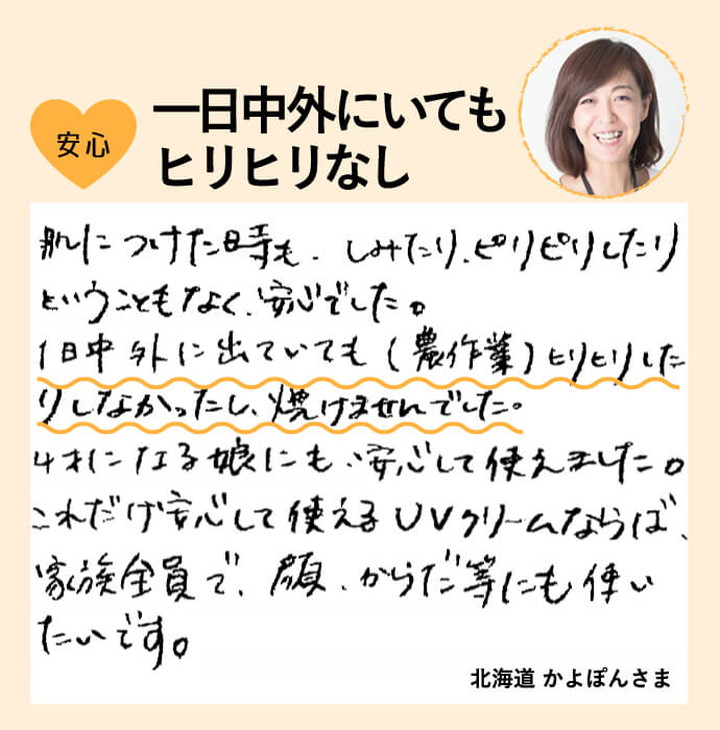 安心
一日中外にいても
ヒリヒリなし
肌につけた時も、しみたり、ピリピリしたり
ということもなく、安心でした。
1日中外に出ていても(農作業)ヒリヒリした
りしなかったし、焼けませんでした。
4才になる娘にも、安心して使えました。
これだけ安心して使えるUVクリームならば、
家族全員で、顔、からだ等にも使い
たいです。
北海道 かよぽんさま